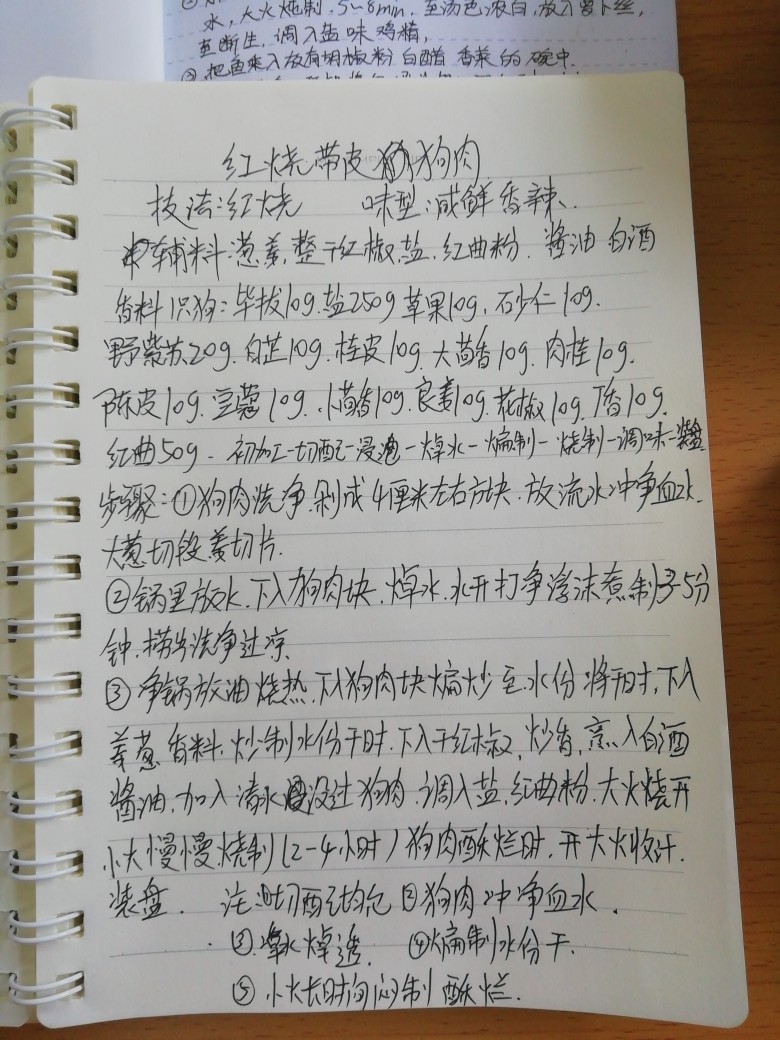 水，大火炖制，5~8min，至汤色浓白，放入萝卜丝，
至断生，调入盐味鸡精，
③把鱼来入放有胡椒粉 白醋 香菜的碗中.
红烧带皮狗肉
技法：红烧 味型：咸鲜香辣、
辅料：葱姜，整干红椒，盐，红曲粉．酱油 白酒
香料 识狗：毕拔10g．盐250g 草果10g，石少仁10g．
野紫苏20g．白芷10g．桂皮10g．大茴香10g．肉桂10g．
陈皮10g．豆蔻10g．小茴香10g．良姜10g．花椒10g．丁香10g．
红曲50g．初加工-切配-浸泡-焯水-煸制-烧制-调味-装盘
步骤：①狗肉洗净．剁成4厘米左右方块．放流水冲净血水．
大葱切段姜切片．
②锅里放水．下入狗肉块．焯水．水开打净浮沫煮制3-5分
钟．捞出洗净过凉．
③净锅放油烧热．下入狗肉块煸炒至水份将干时，下入
姜葱．香料．炒制水份干时．下入干红椒，炒香，烹入白酒
酱油，加入清水没过狗肉．调入盐，红曲粉．大火烧开
小火慢慢烧制（2-4小时）狗肉酥烂时．开大火收汁．
装盘． 注：①切配均匀 ②狗肉冲净血水．
③．焯透． ④煸制水份干．
⑤小火长时间焖制酥烂．